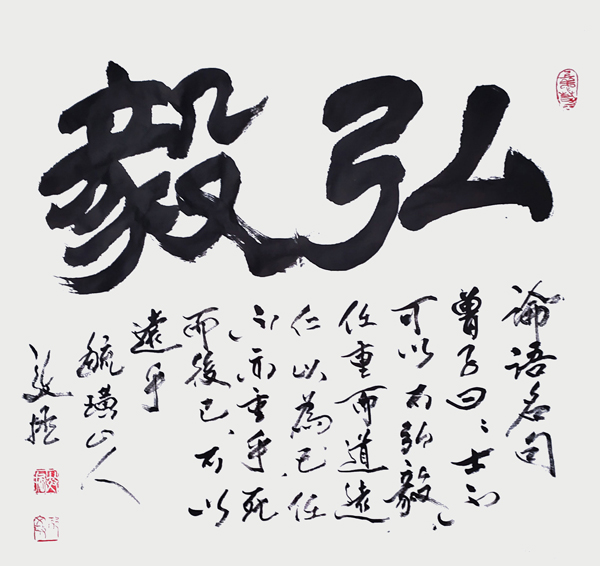 弘毅
論語名句
曾子曰、士不
可以不弘毅、
任重而道遠
仁以為己任
不亦重乎死
而後已、不以
遠乎
毓璜山人